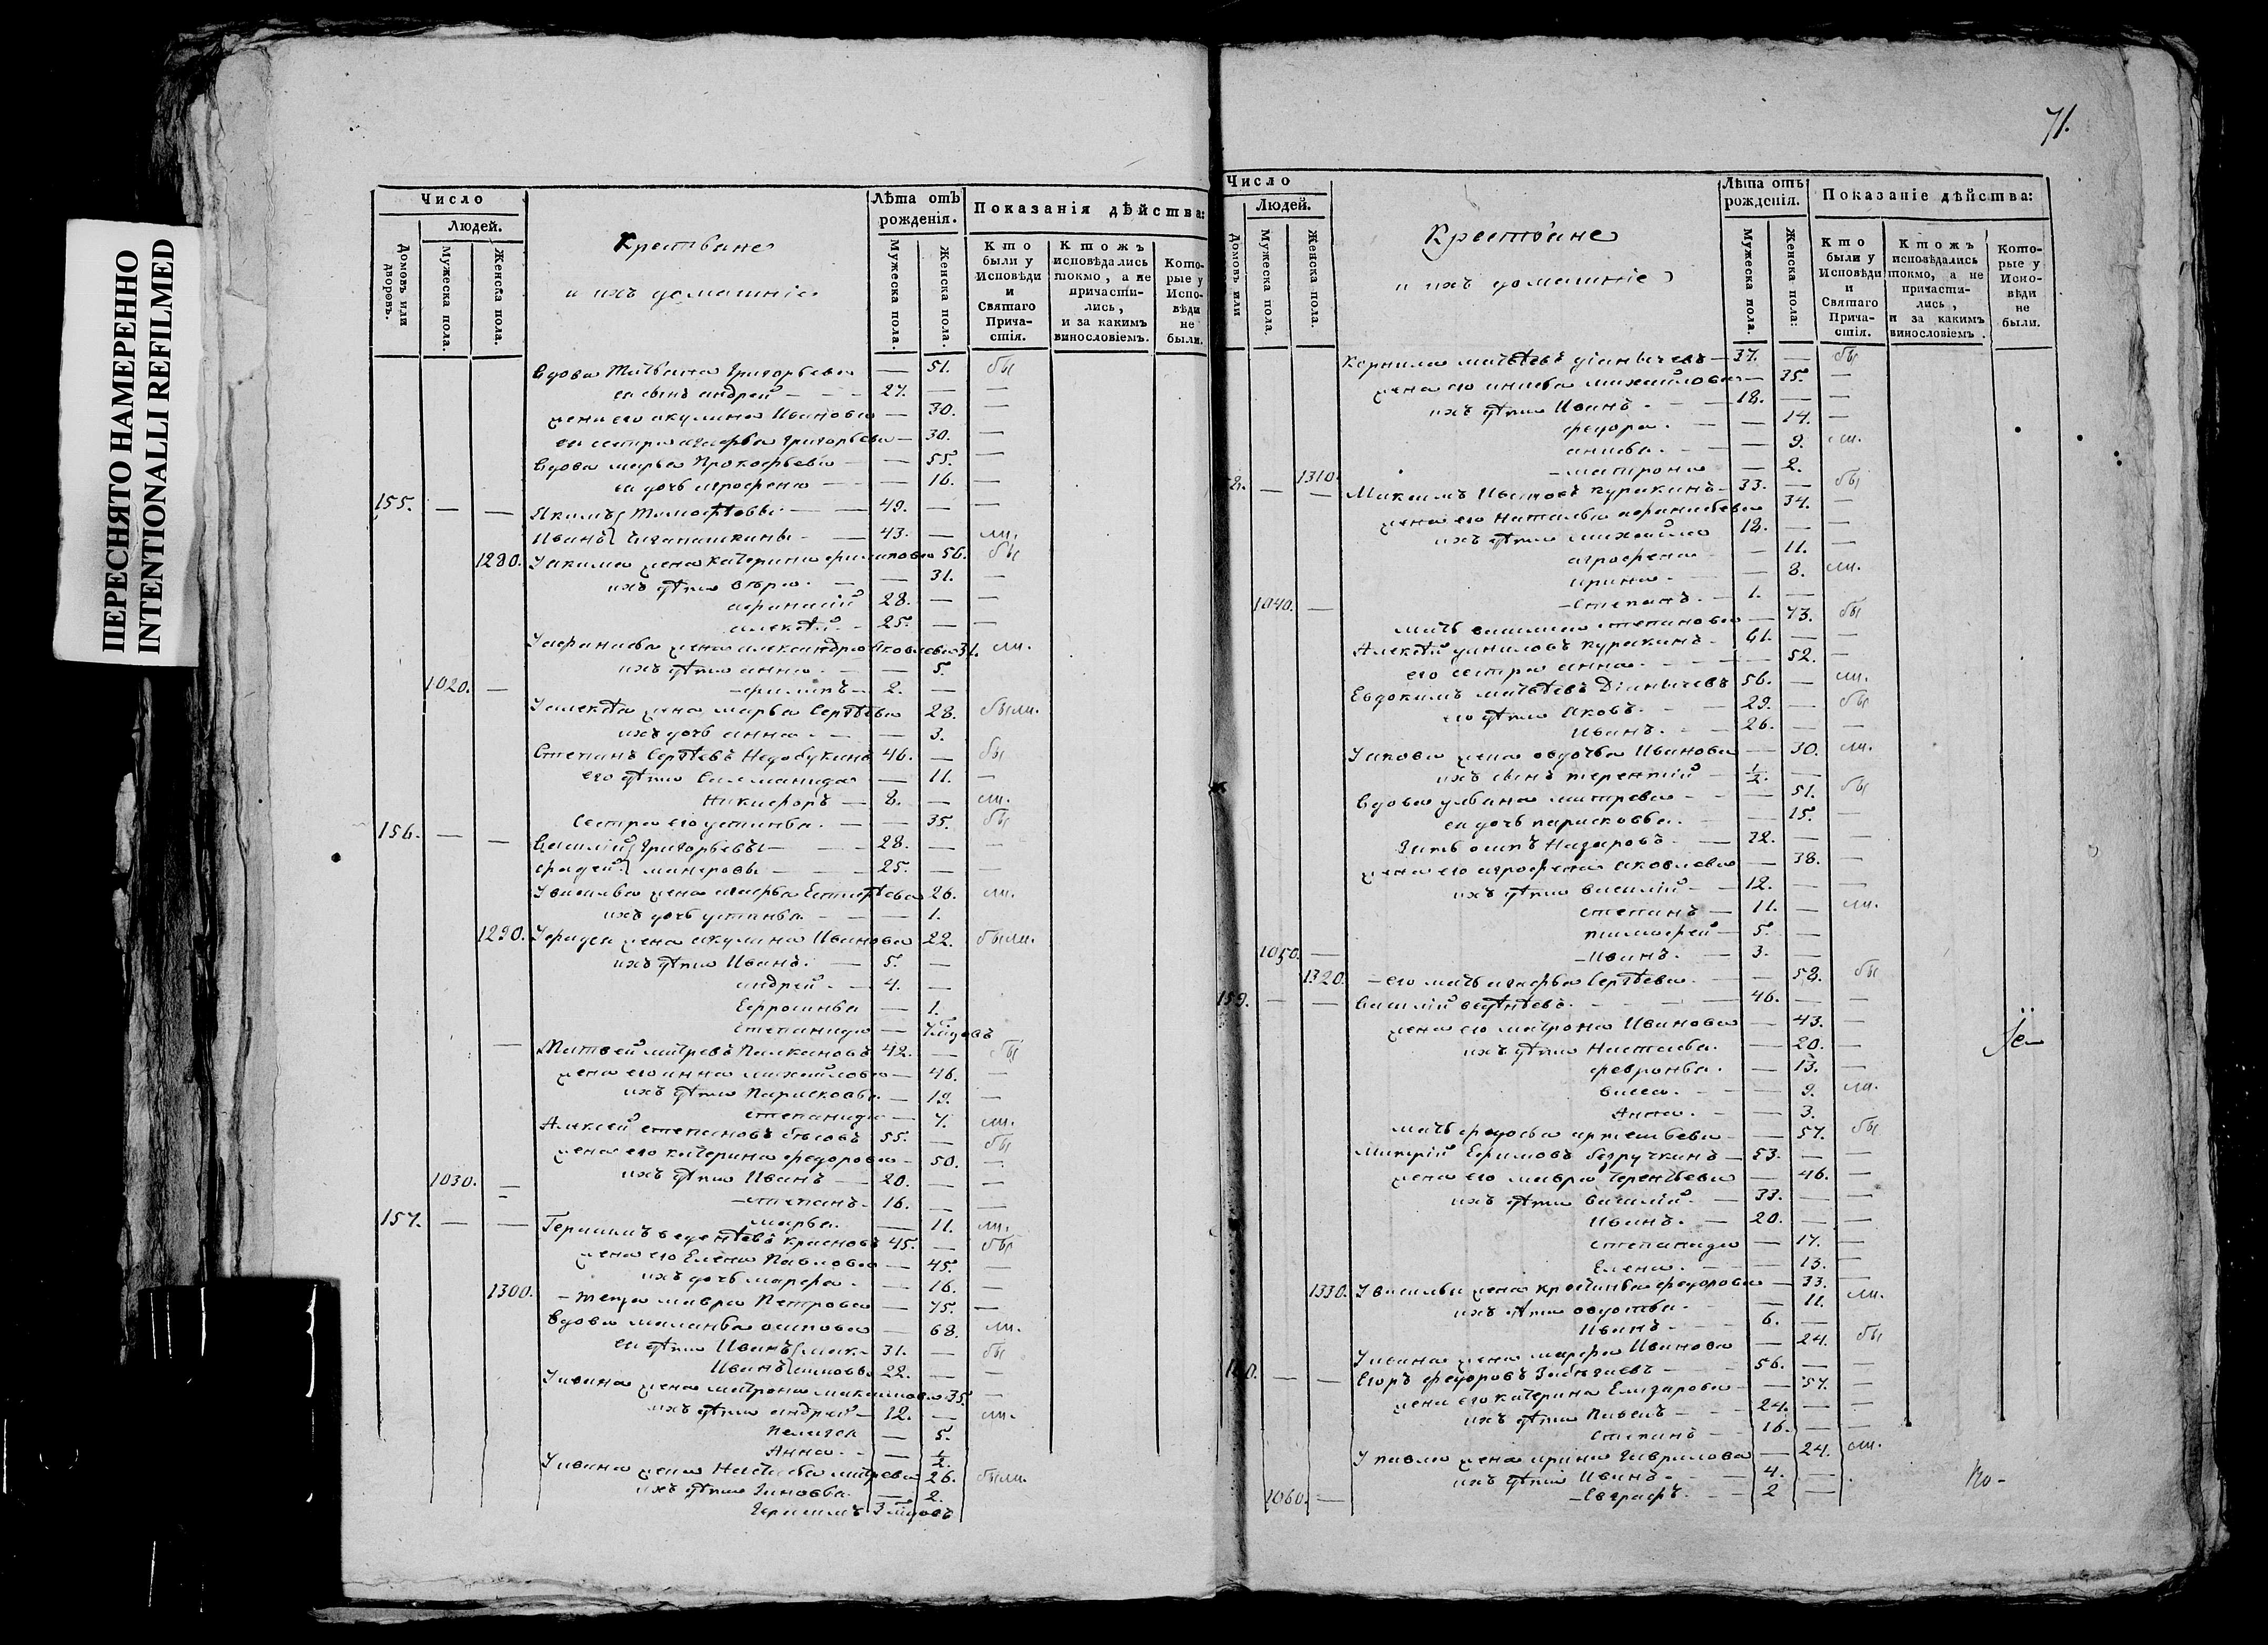 ПЕРЕСНЯТО НАМЕРЕННО
INTENTIONALLI REFILMED
Число
Людей.
Домовъ или дворовъ.
Мужеска пола.
Женска пола.
Крестьяне
и ихъ домашніе
Лѣта отъ рожденія.
Мужеска пола.
Женска пола.
Показанія дѣйства:
Кто были у Исповѣди и Святаго Прича-стія.
Ктожъ исповѣдались токмо, а не причасти-лись, и за какимъ винословіемъ.
Кото-рые у Испо-вѣди не были.
Вдова Татьяна Григорьева — 51. бы
ея сынъ андрей 27. — —
жена его акулина Иванова — 30. —
ея сестра агафья григорьева — 30. —
Вдова марья Прокофьева — 55. —
ея дочь агрофена — 16. —
155. — — Якимъ Тимофѣевы 49. — —
Иванъ 43. — ма.
1280. У акима жена катерина филипова 56. бы
ихъ дѣти — 31. —
афанасій 28. — —
алексѣй 25. — —
У афанасья жена александра Яковлева 31. ма.
ихъ дѣти анна — 5.
1020. — филипъ 2. —
У алексѣя жена марья Сергѣева 28. были.
ихъ дочь анна — 3.
Степанъ Сергѣевъ 46. — бы
его дѣти — 11. —
Никифоръ 8. — ма.
сестра его устинья — 35. бы
156. — — Василій Григорьевы 28. — —
фадей 25. — —
У василья жена агафья 26. ма.
ихъ дочь устинья — 1.
1290. У фадея жена акулина Иванова 22. были.
ихъ дѣти Иванъ 5. —
андрей 4. —
Ефросинья — 1.
степанида —
— Матвей митревъ 42. — бы
жена его анна михайлова — 46. —
ихъ дѣти Парасковья — 19. —
степанида — 7. ма.
Алексей степановъ 55. — бы
жена его катерина федорова 50. —
1030. — ихъ дѣти Иванъ 20. — —
степанъ 16. — —
марья — 11. ма.
157. — — Герасимъ красновъ 45. — бы
жена его Елена Павлова — 45. —
ихъ дочь марфа — 16. —
1300. теща мавра Петрова — 75. —
Вдова маланья осипова — 68. ма.
ея дѣти Иванъ 31. — бы
Иванъ 22. — —
У ивана жена матрона максимова 35. —
ихъ дѣти андрей 12. — ма.
Пелагея — 5.
Анна — ½.
У ивана жена Настасья митрева 26. были.
ихъ дѣти Зиновья — 2.
Герасимъ
71.
Число
Людей.
Домовъ или
Мужеска пола.
Женска пола.
Крестьяне
и ихъ домашніе
Лѣта отъ рожденія.
Мужеска пола.
Женска пола:
Показаніе дѣйства:
Кто были у Исповѣди и Святаго Прича-стія.
Ктожъ исповѣдались токмо, а не причасти-лись, и за какимъ винословіемъ.
Кото-рые у Испо-вѣди не были.
Корнило матвѣевъ 37. — бы
жена его анисья михайлова — 35. —
ихъ дѣти Иванъ 18. — —
федора — 14. —
анисья — 9. ма.
1310. матрона — 2.
8. — — Максимъ Ивановъ куракинъ 33. — бы
жена его Наталья афанасьева 34. —
ихъ дѣти михайло 12. — —
агрофена — 11. —
ирина — 8. ма.
1040. — степанъ 1. —
мать степанова — 73. бы
Алексѣй даниловъ куракинъ 61. — —
его сестра анна — 52. —
Евдокимъ матвѣевъ 56. — ма.
его дѣти Яковъ 29. — бы
Иванъ 26. — —
У акова жена авдотья Иванова — 30. ма.
ихъ сынъ терентій ½. —
Вдова ульяна митрева — 51. бы
ея дочь парасковья — 15. —
Зять осипъ Назаровъ 32. — —
жена его агрофена яковлева — 38. —
ихъ дѣти василій 12. — —
степанъ 11. — ма.
тимофей 5. —
1050. — Иванъ 3. —
1320. его мать агафья Сергѣева — 58. бы
159. — — Василій 46. — —
жена его матрона Иванова — 43. —
ихъ дѣти Настасья — 20. —
февронья — 13. —
васса — 9. ма.
Анна — 3.
мать федосья — 57. бы
Митрій Ефимовъ 53. — —
жена его мавра терентьева — 46. —
ихъ дѣти василій 33. — —
Иванъ 20. — —
степанида — 17. —
Елена — 13. —
1330. У василья жена федорова — 33. —
ихъ дѣти авдотья — 11. ма.
Иванъ 6. —
У ивана жена марфа Иванова — 24. бы
160. — — Егоръ федоровъ 56. — —
жена его катерина Елизарова — 57. —
ихъ дѣти Павелъ 24. — —
степанъ 16. — —
У павла жена ирина гаврилова — 24. ма.
ихъ дѣти Иванъ 4. —
1060. — Евграфъ 2 —